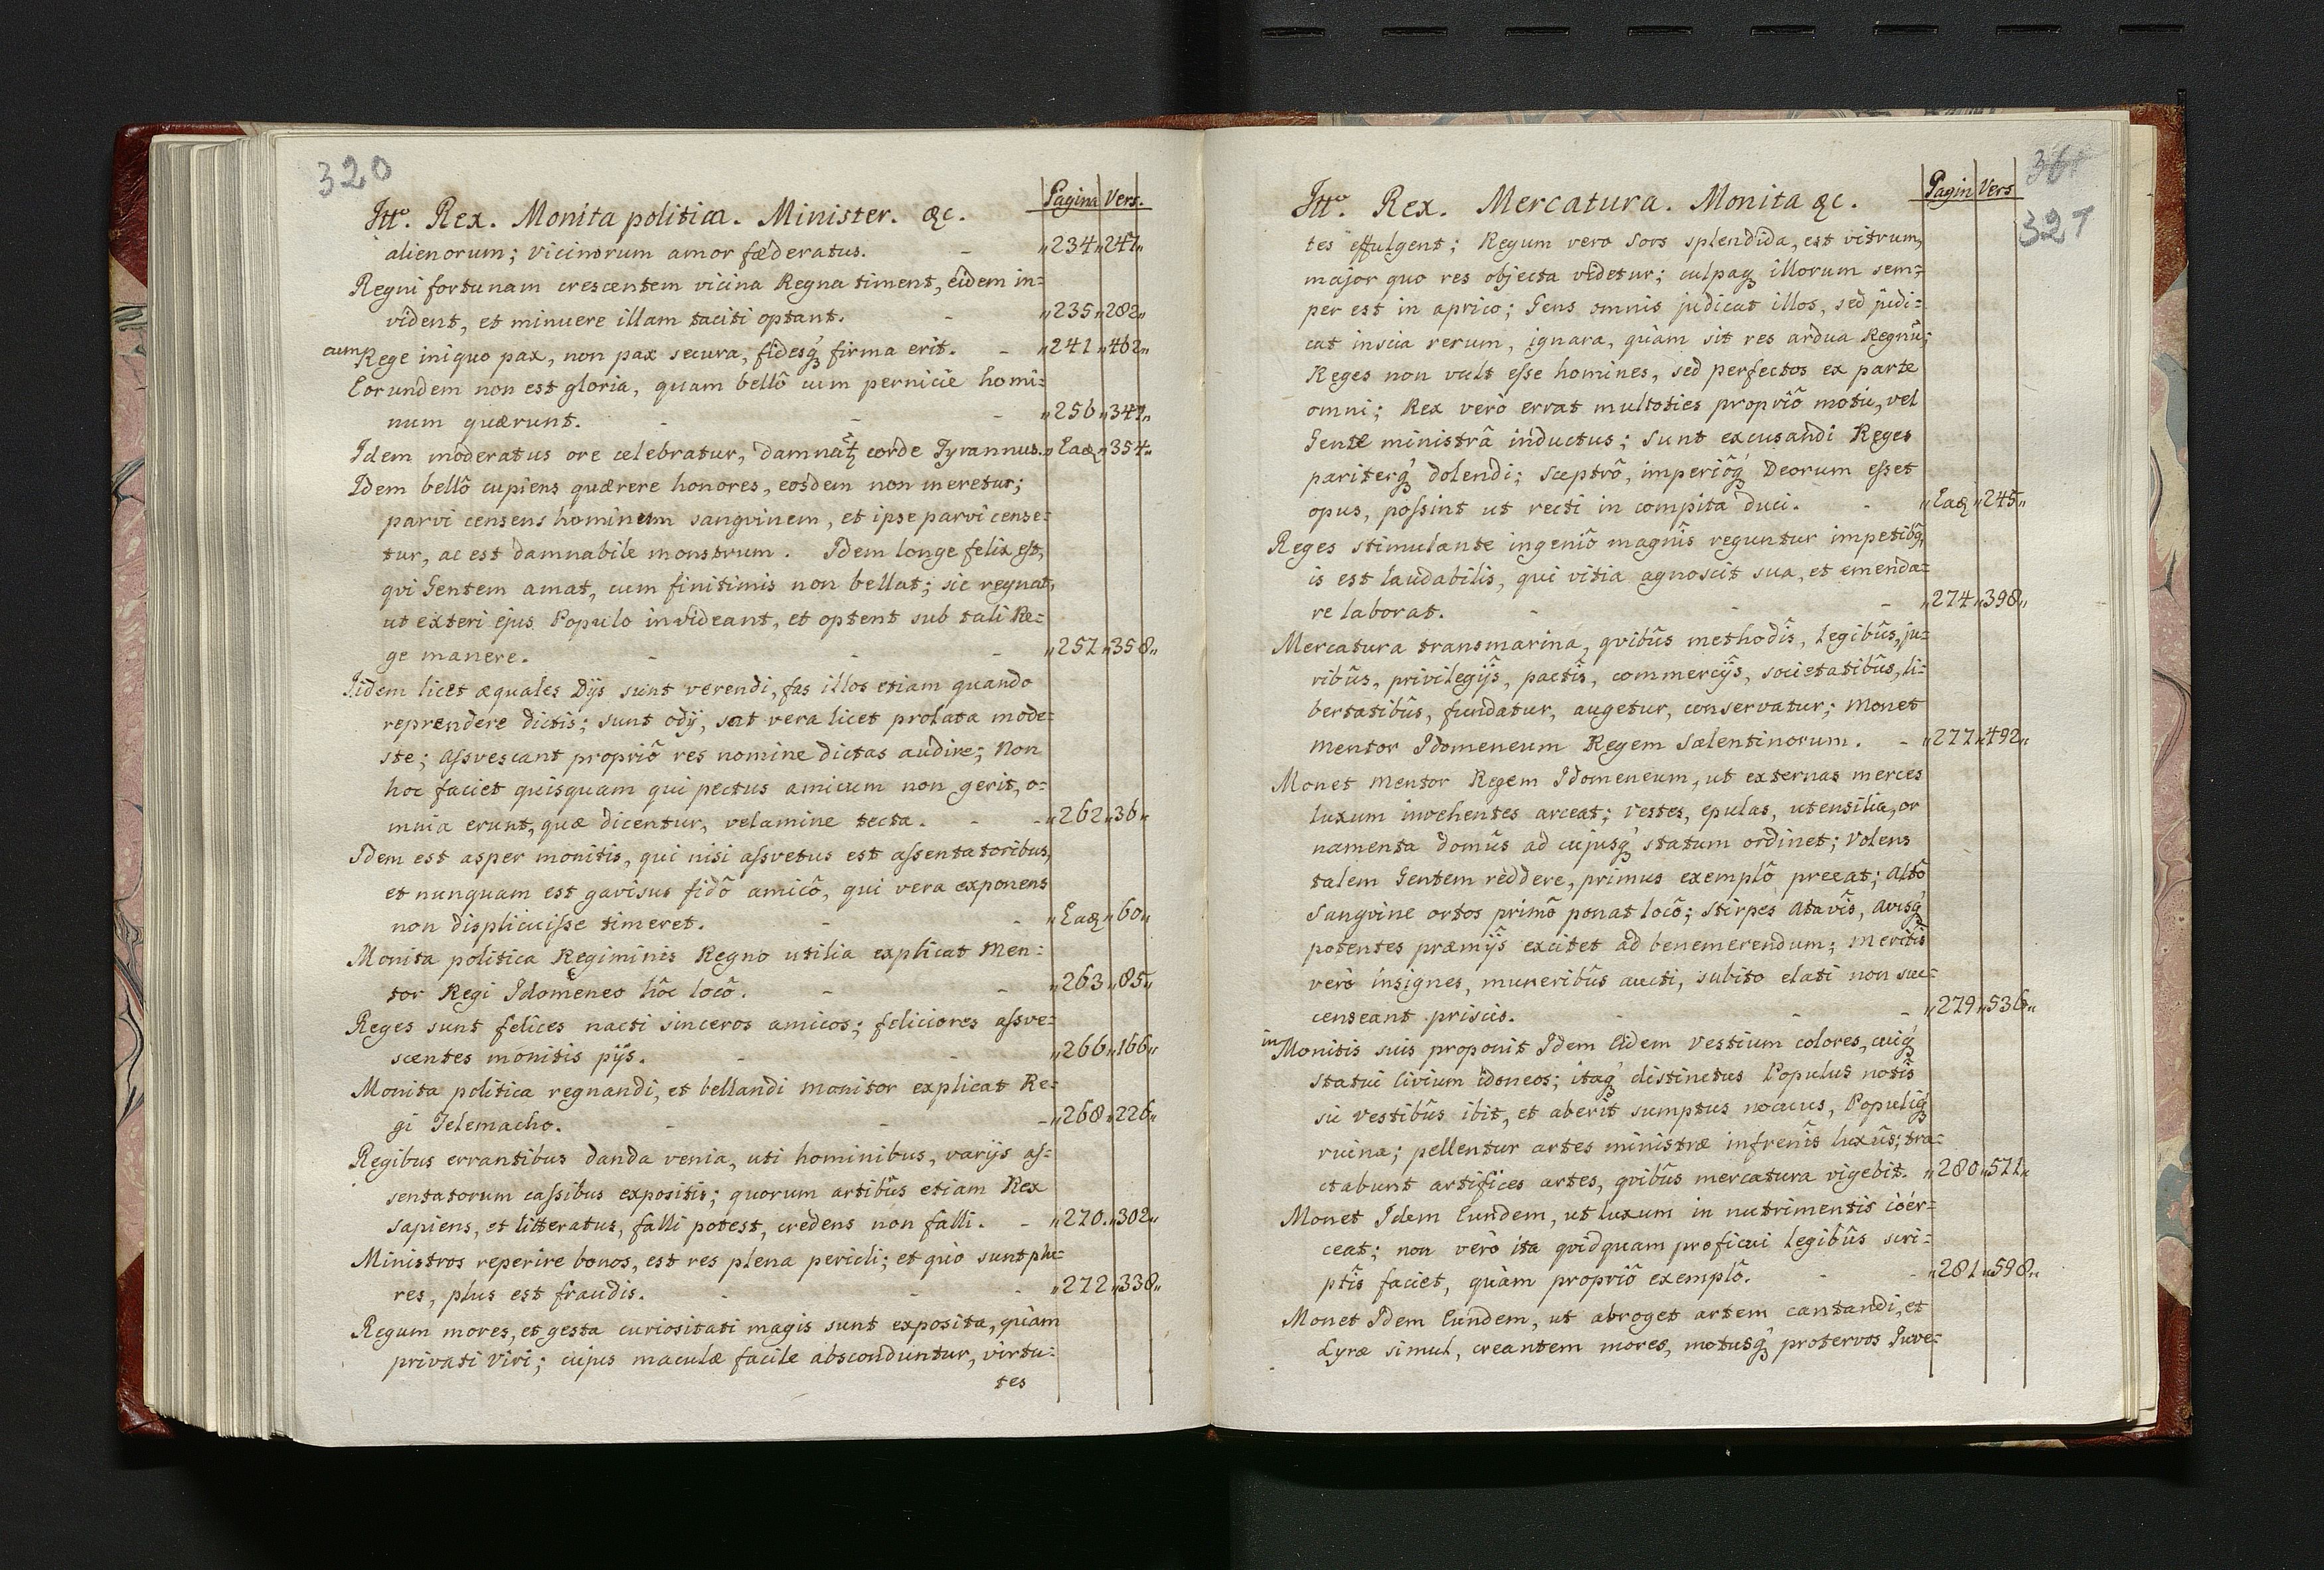 320
Jtt͠o. Rex. Monita politica. Minister. &c. Pagina Vers.
alienorum; vicinorum amor fœderatus. - „234„247„
Regni fortunam crescentem vicina Regna timent, eidem in=
vident, et minuere illam taciti optant. - „235„282„
cum Rege iniquo pax, non pax secura, fidesq́ꝫ firma erit. - „241„462„
Eorundem non est gloria, quam bellô cum pernicie homi=
num quærunt. - - - „256„347„
Idem moderatus ore celebratur, damnatꝫ corde Tyrannus. „Eaꝫ„354„
Idem bellô cupiens quærere honores, eosdem non meretur;
parvi censens hominum sangvinem, et ipse parvi cense=
tur, ac est damnabile monstrum. Idem longe felix est,
qvi Gentem amat, cum finitimis non bellat; sic regnat,
ut exteri ejus Populo invideant, et optent sub tali Re=
ge manere. - - - „257„358„
Iidem licèt æquales Dijs sunt verendi, fas illos etiam quando
reprendere dictis; sunt odij, sat vera licet prolata mode=
ste; assvescant propriô res nomine dictas audire; Non
hoc faciet quisquam qui pectus amicum non gerit, o=
mnia erunt, quæ dicentur, velamine tecta. - - „262„36„
Idem est asper monitis, qui nisi assvetus est assentatoribus,
et nunquam est gavisus fidô amicô, qui vera exponens
non displicuisse timeret. - - „Eaꝫ„60„
Monita politica Regiminis Regno utilia explicat Men=
tor Regi Idomeneo hôc locô. - - „263„85„
Reges sunt felices nacti sinceros amicos; feliciores assve=
scentes monitis pijs. - - „266„166„
Monita politica regnandi, et bellandi monitor explicat Re=
gi Telemacho. - - - „268„226„
Regibus errantibus danda venia, uti hominibus, varijs as=
sentatorum cassibus expositis; quorum artibûs etiam Rex
sapiens, et litteratus, falli potest, credens non falli. - „270„302„
Ministros reperire bonos, est res plena pericli; et quò sunt plu=
res, plus est fraudis. - - - „272„338„
Regum mores, et gesta curiositati magis sunt exposita, quàm
privati Viri; cujus maculæ facile absconduntur, virtu=
tes
361
321
Jtt͠o. Rex. Mercatura. Monita &c. Pagin Vers
tes effulgent; Regum vero Sors splendida, est vitrum,
major quo res objecta videtur; culpaqꝫ illorum sem=
per est in aprico; Gens omnis judicat illos, sed judi=
cat inscia rerum, ignara, quàm sit res ardua Regnũ;
Reges non vult esse homines, sed perfectos ex parte
omni; Rex verò errat multoties propriô motu, vel
Gentê ministrâ inductus; Sunt excusandi Reges
pariterq́ꝫ dolendi; sceptrô, imperiôq́ꝫ Deorum esset
opus, possint ut recti in compita duci. - „Eaꝫ„245„
Reges stimulante ingeniô magnîs reguntur impetibꝫ,
is est laudabilis, qui vitia agnoscit sua, et emenda=
re laborat. - - - „274„398„
Mercatura transmarina, qvibûs methodîs, legibûs, ju=
ribûs, privilegijs, pactîs, commercijs, societatibûs, li=
bertatibûs, fundatur, augetur, conservatur; monet
mentor Idomeneum Regem Salentinorum. - „277„492„
Monet mentor Regem Idomeneum, ut externas merces
luxum invehentes arceat; vestes, epulas, utensilia, or
namenta domûs ad cujusq́ꝫ statum ordinet; Volens
talem Gentem rèddere, primus exemplô preeat; altô
Sangvine ortos primô ponat locô; stirpes atavîs, avisq́ꝫ
potentes præmijs excitet ad benemerendum; meritîs
verò insignes, muneribûs aucti, subito elati non suc=
censeant priscis. - - - „279„536„
in Monitis suis proponit Idem Eidem Vestium colores, cuiq́ꝫ
statui Civium idoneos; itaq́ꝫ distinctus Populus notîs
sic vestibûs ibit, et aberit sumptus nocuus, Populiq́ꝫ
ruina; pellentur artes ministræ infrenîs luxûs; tra=
ctabunt artifices artes, qvibûs mercatura vigebit. „280„571„
Monet Idem Eundem, ut luxum in nutrimentis coër=
ceat; non verò ita qvidquam proficui legibûs scri=
ptîs faciet, quàm propriô exemplô. - - „281„598„
Monet Idem Eundem, ut abroget artem cantandi, et
Lyræ simul, creantem mores, motusq́ꝫ protervos Juve=